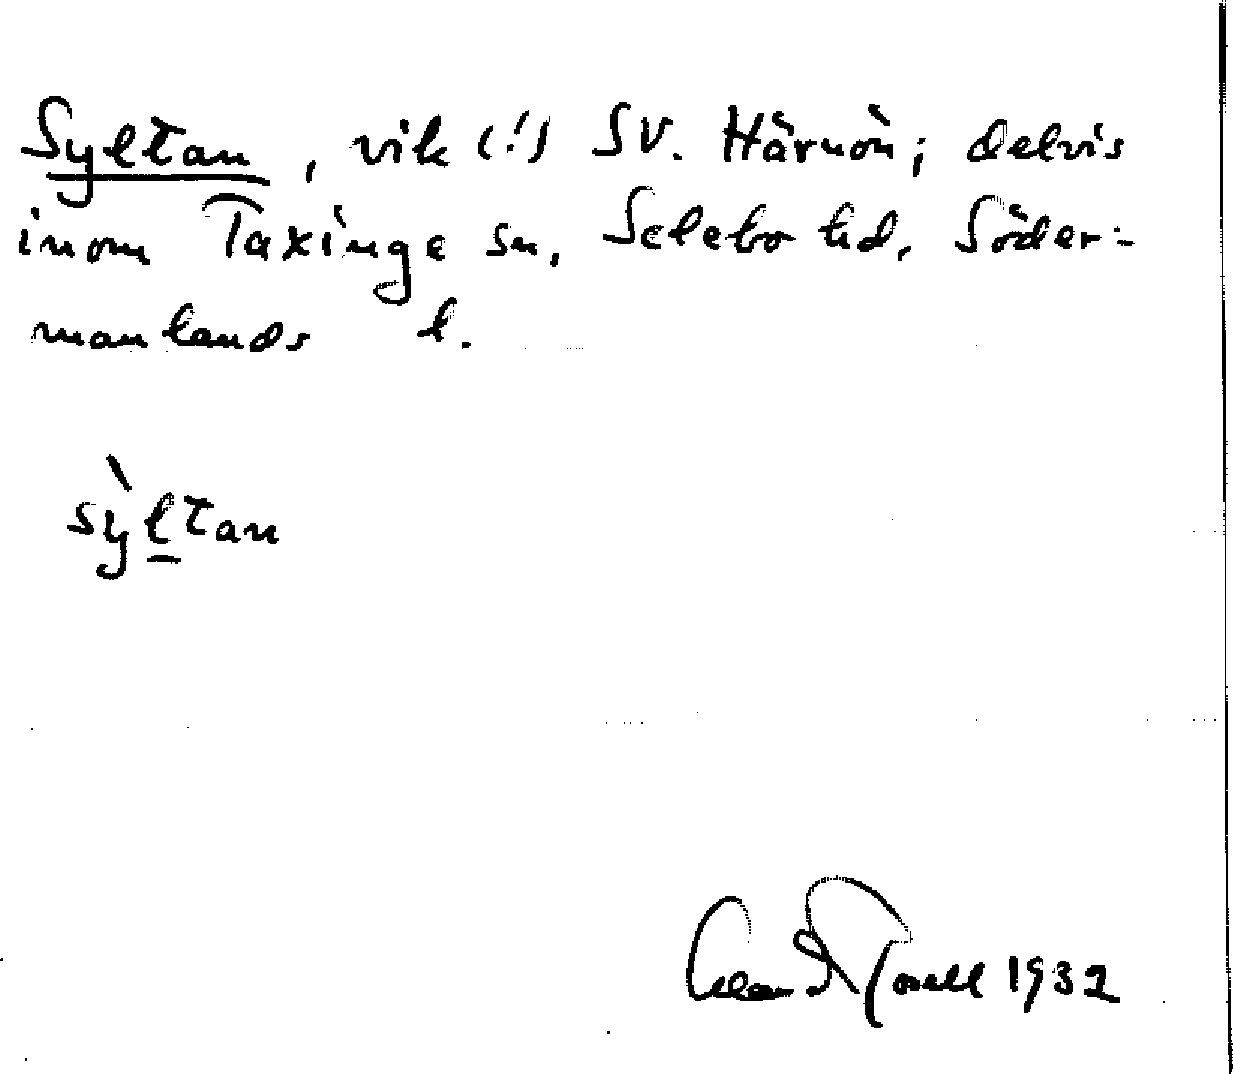 Syltan, vik (!) SV. Härnön; delvis
inom Taxinge sn, Selebo hd, Söder-
manlands l.
sỳltan
1932